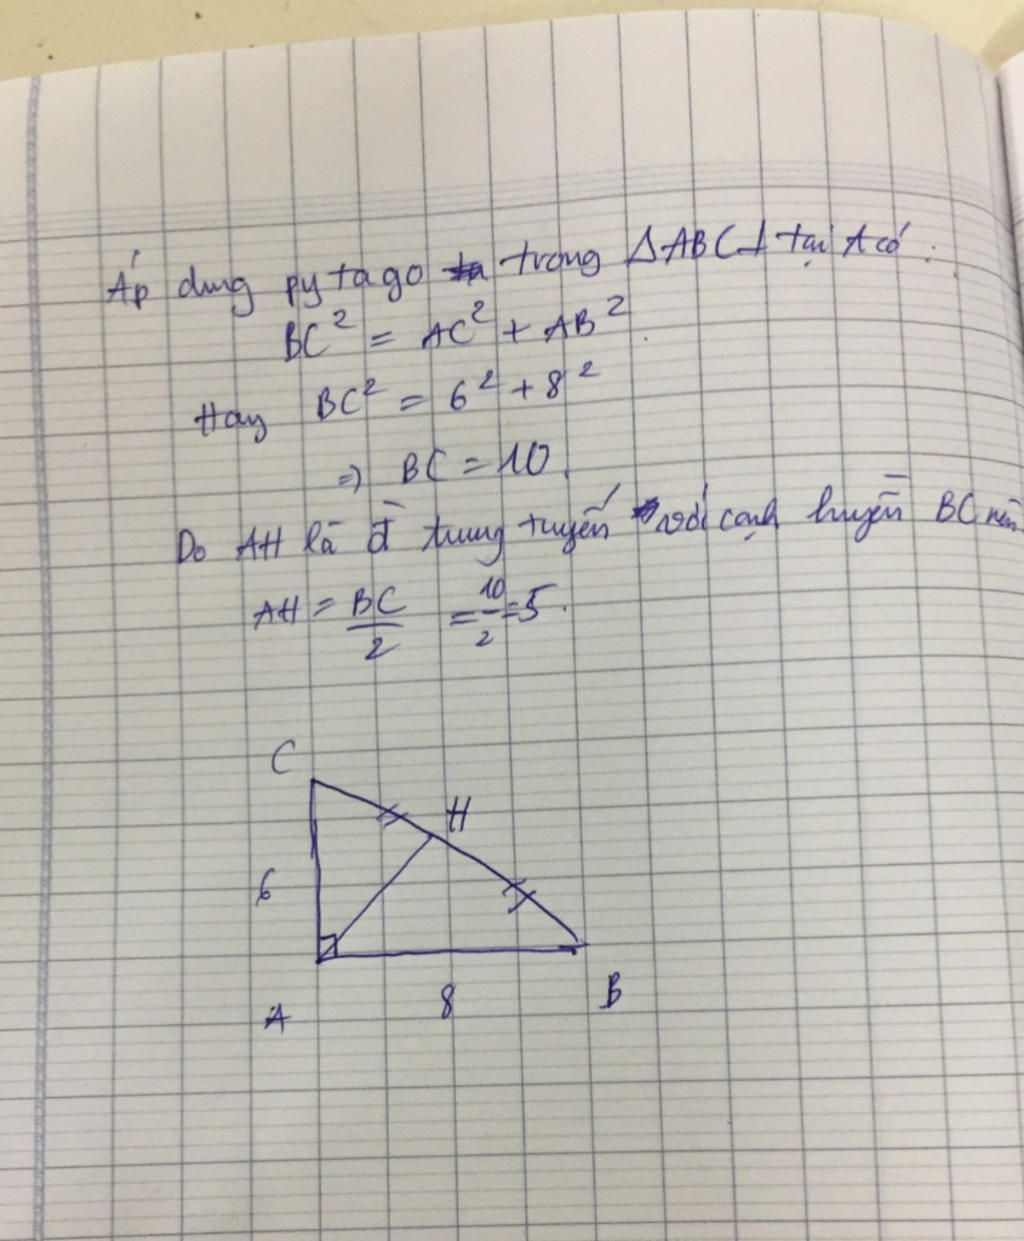 Áp dung pytago trong ΔABC ⊥ tại A có :
BC² = AC² + AB².
Hay BC² = 6² + 8²
⇒ BC = 10
Do AH là đ̀ trung tuyến với cạnh huyền BC nên
AH = BC/2 = 10/2 = 5.
C
H
6
A
8
B